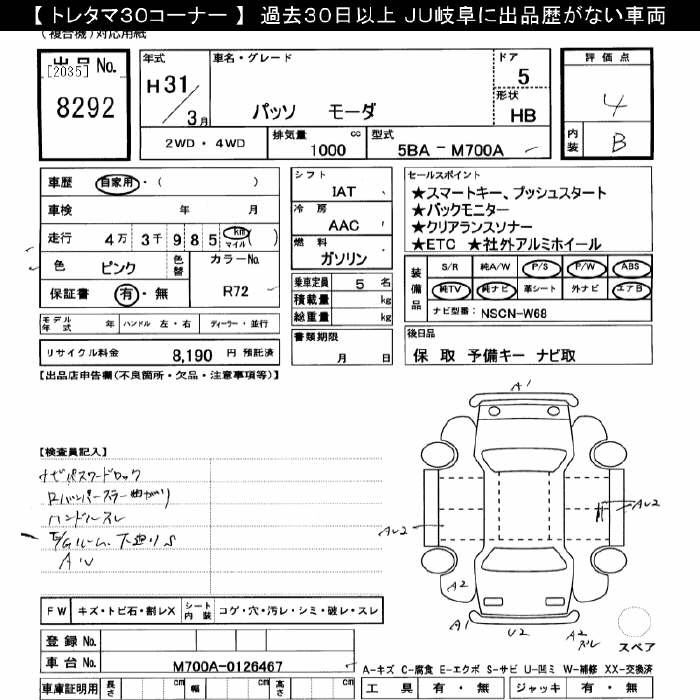 【 トレタマ30コーナー 】 過去30日以上 JU岐阜に出品歴がない車両
(複合機)対応用紙
出品No.
[2035]
8292
年式
H 31 / 3 月
車名・グレード
パッソ モーダ
ドア
5
形状
HB
2WD ・ 4WD
排気量 cc
1000
型式
5BA - M700A
評価点
4
内装
B
車歴 自家用 ・( )
車検 年 月
走行 4万 3千 9 8 5 km マイル ( )
色 ピンク 色替
カラーNo.
R72
保証書 有 ・ 無
モデル年式 年 ハンドル 左 ・ 右 ディーラー ・ 並行
リサイクル料金 8,190 円 預託済
シフト
IAT
冷房
AAC
燃料
ガソリン
乗車定員 5 名
積載量 kg
総重量 kg
書類期限
月 日
セールスポイント
★スマートキー、プッシュスタート
★バックモニター
★クリアランスソナー
★ETC ★社外アルミホイール
装備品
S/R 純A/W P/S P/W ABS
純TV 純ナビ 革シート 外ナビ エアB
ナビ型番: NSCN-W68
後日品
保 取 予備キー ナビ取
【出品店申告欄(不良箇所・欠品・注意事項等)】
【検査員記入】
ナビパスワードロック
ハンドルスレ
E/Gルーム、下廻りS
AU
A1
AU2
AU2
A2
A1
U2
A2
スレ
スペア
FW キズ・トビ石・割レX シート内装 コゲ・穴・汚レ・シミ・破レ・スレ
登録No.
車台No. M700A-0126467
A-キズ C-腐食 E-エクボ S-サビ U-凹ミ W-補修 XX-交換済
車庫証明用 長さ cm 幅 cm 高さ cm
工具 有 ・ 無 ジャッキ 有 ・ 無